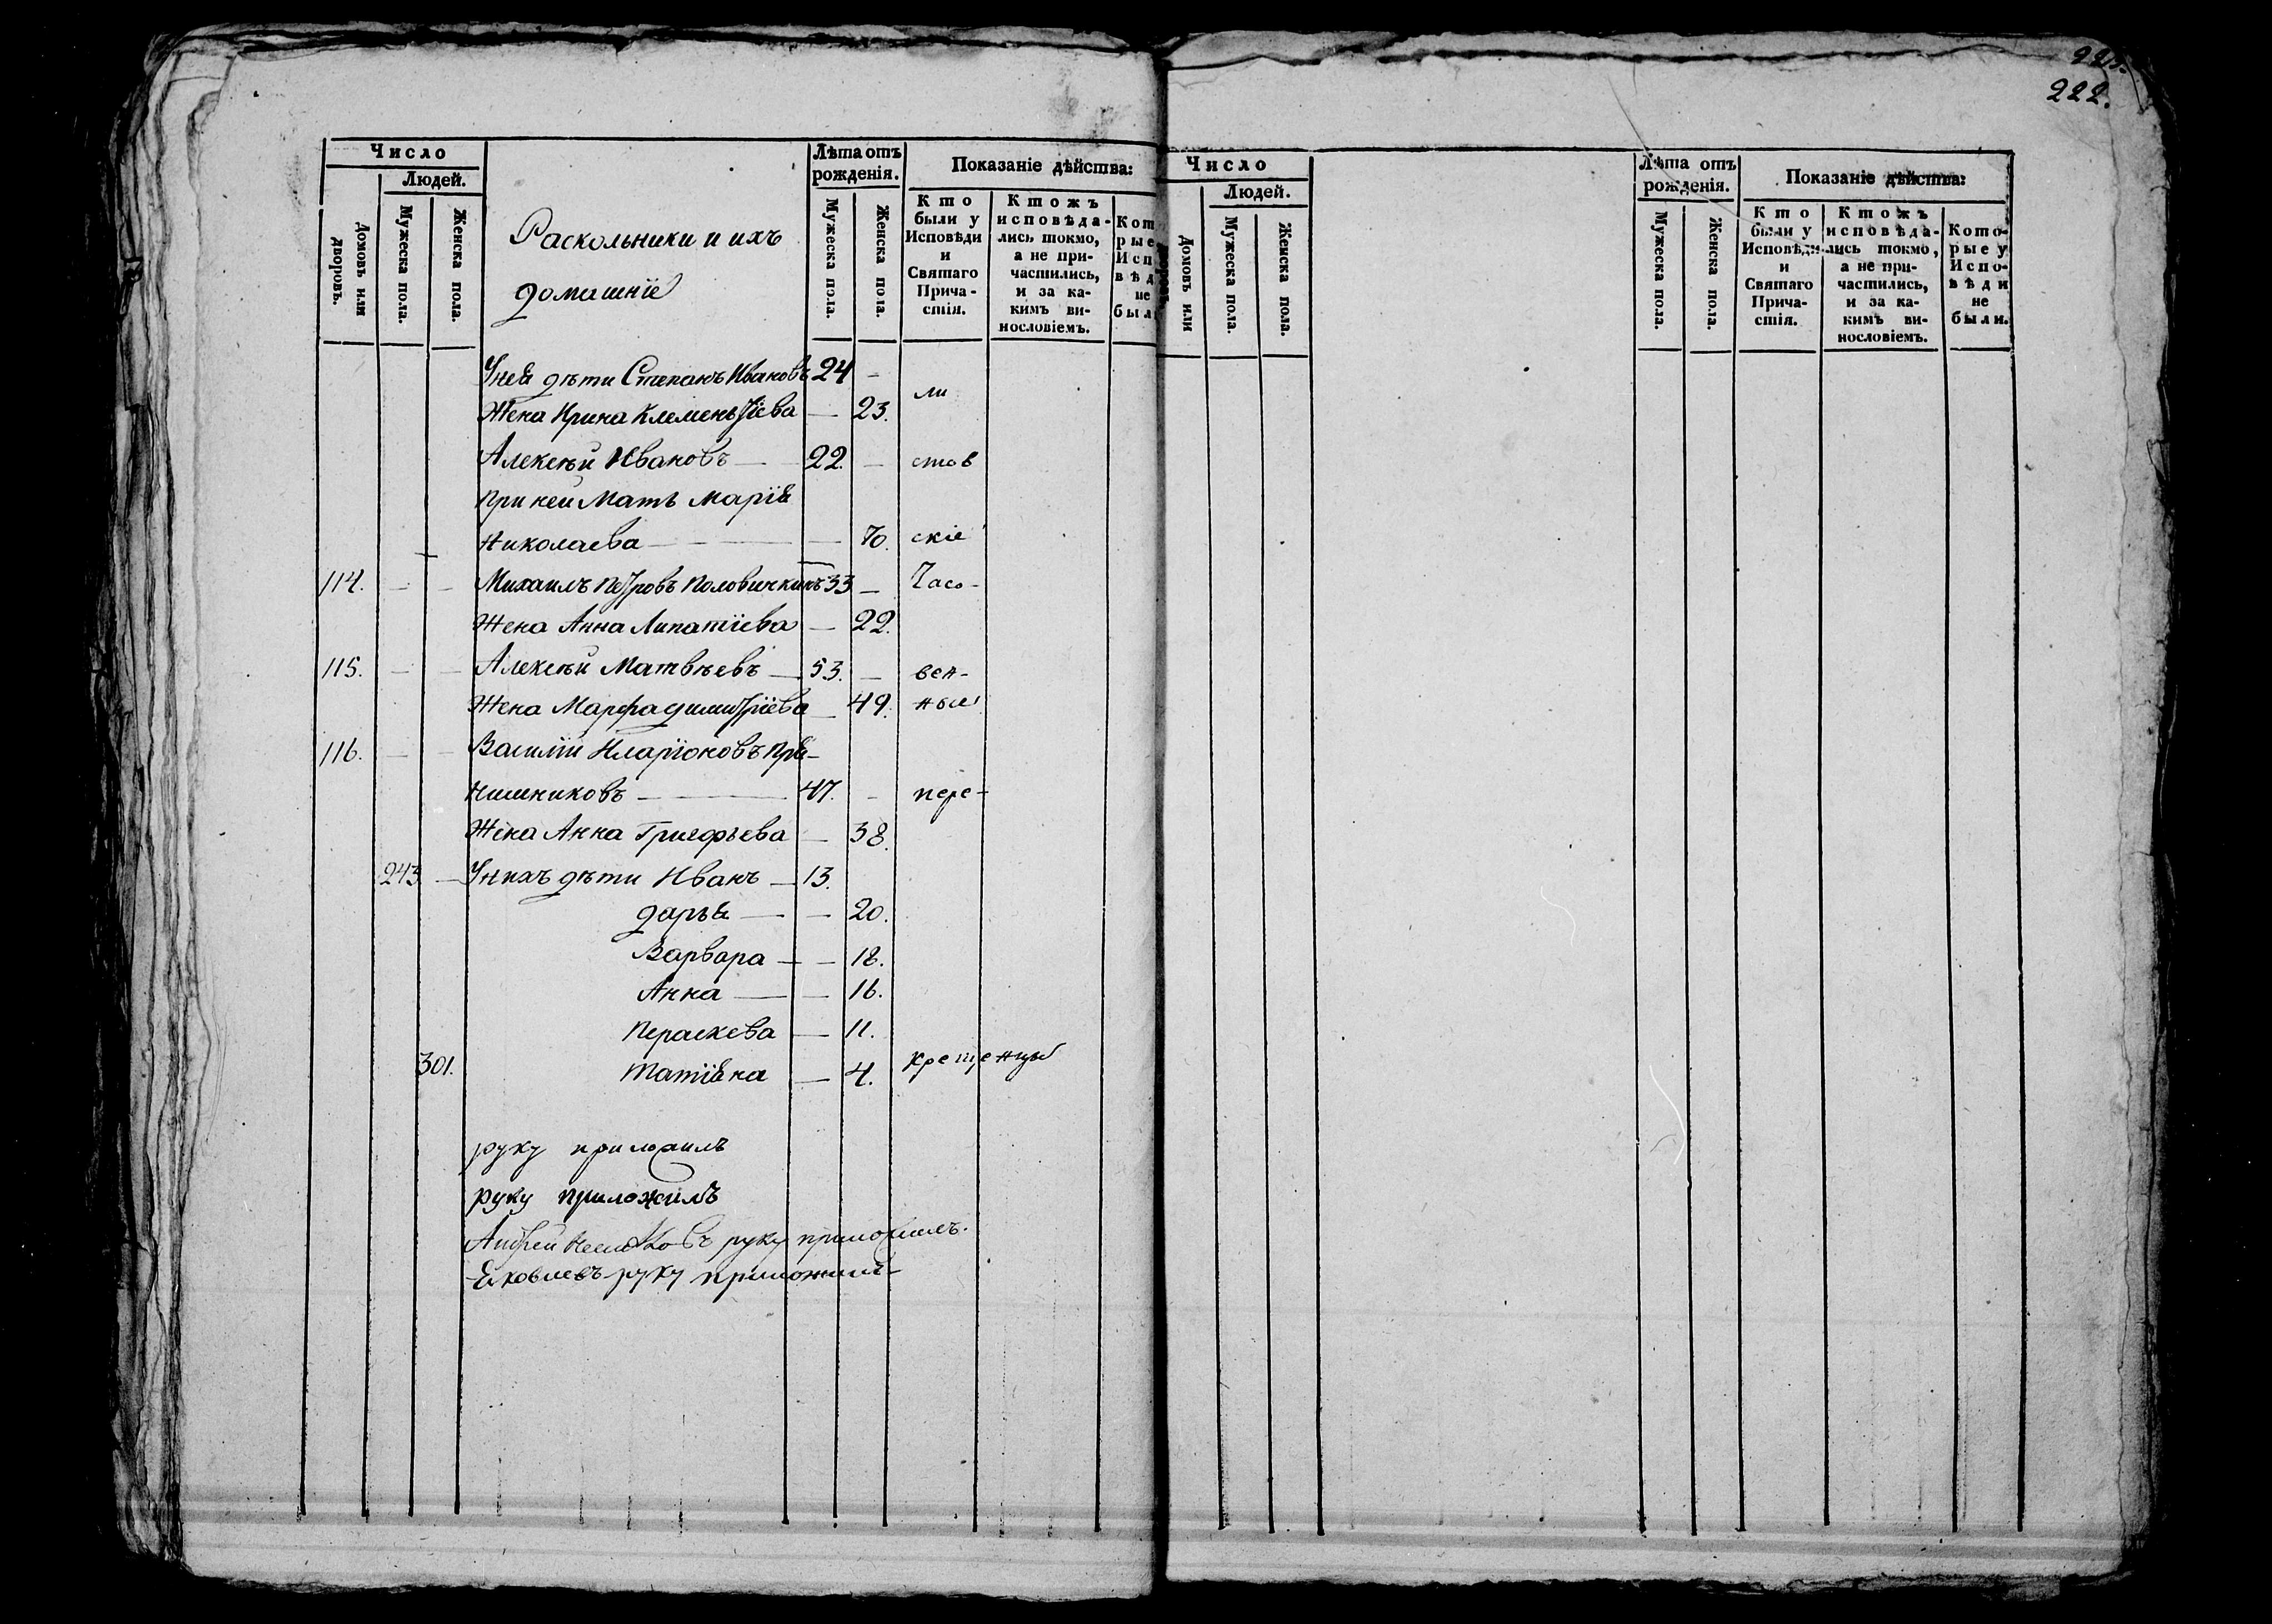 223.
222.
Число
Людей.
Домовъ или дворовъ.
Мужеска пола.
Женска пола.
Раскольники и ихъ
домашніе
Лѣта отъ
рожденія.
Мужеска пола.
Женска пола.
Показаніе дѣйства:
Кто
были у
Исповѣди
и
Святаго
Прича-
стія.
Ктожъ
исповѣда-
лись токмо,
а не при-
частились,
и за ка-
кимъ ви-
нословіемъ.
Кот
рые
Исп
вѣд
не
был
Унея дѣти Степанъ Ивановъ 24 -
ли
Жена Ирина Клементіева — 23.
Алексѣй Ивановъ — 22. — стов
При ней Мать Марія
Николаева — — 70. скіе
114. — — Михаилъ Петровъ Половинкинъ 33 — Часо-
Жена Анна Липатіева — 22.
115. — — Алексѣй Матвѣевъ — 53. — вен-
Жена Марфа Димитріева — 49. ные
116. — — Василій Иларіоновъ Пря-
нишниковъ — 47. — пере-
Жена Анна Григорьева — 38.
243. — Унихъ дѣти Иванъ — 13.
Дарья — — 20.
Варвара — — 18.
Анна — — 16.
Параскева — 11.
301. Татіяна — 4. крещенцы
руку приложилъ
руку приложилъ
Андрей руку приложилъ.
Яковлевъ руку приложилъ
Число
Людей.
Домовъ или дворовъ.
Мужеска пола.
Женска пола.
Лѣта отъ
рожденія.
Мужеска пола.
Женска пола.
Показаніе дѣйства:
Кто
были у
Исповѣди
и
Святаго
Прича-
стія.
Ктожъ
исповѣда-
лись токмо,
а не при-
частились,
и за ка-
кимъ ви-
нословіемъ.
Кото-
рые у
Испо-
вѣди
не
были.